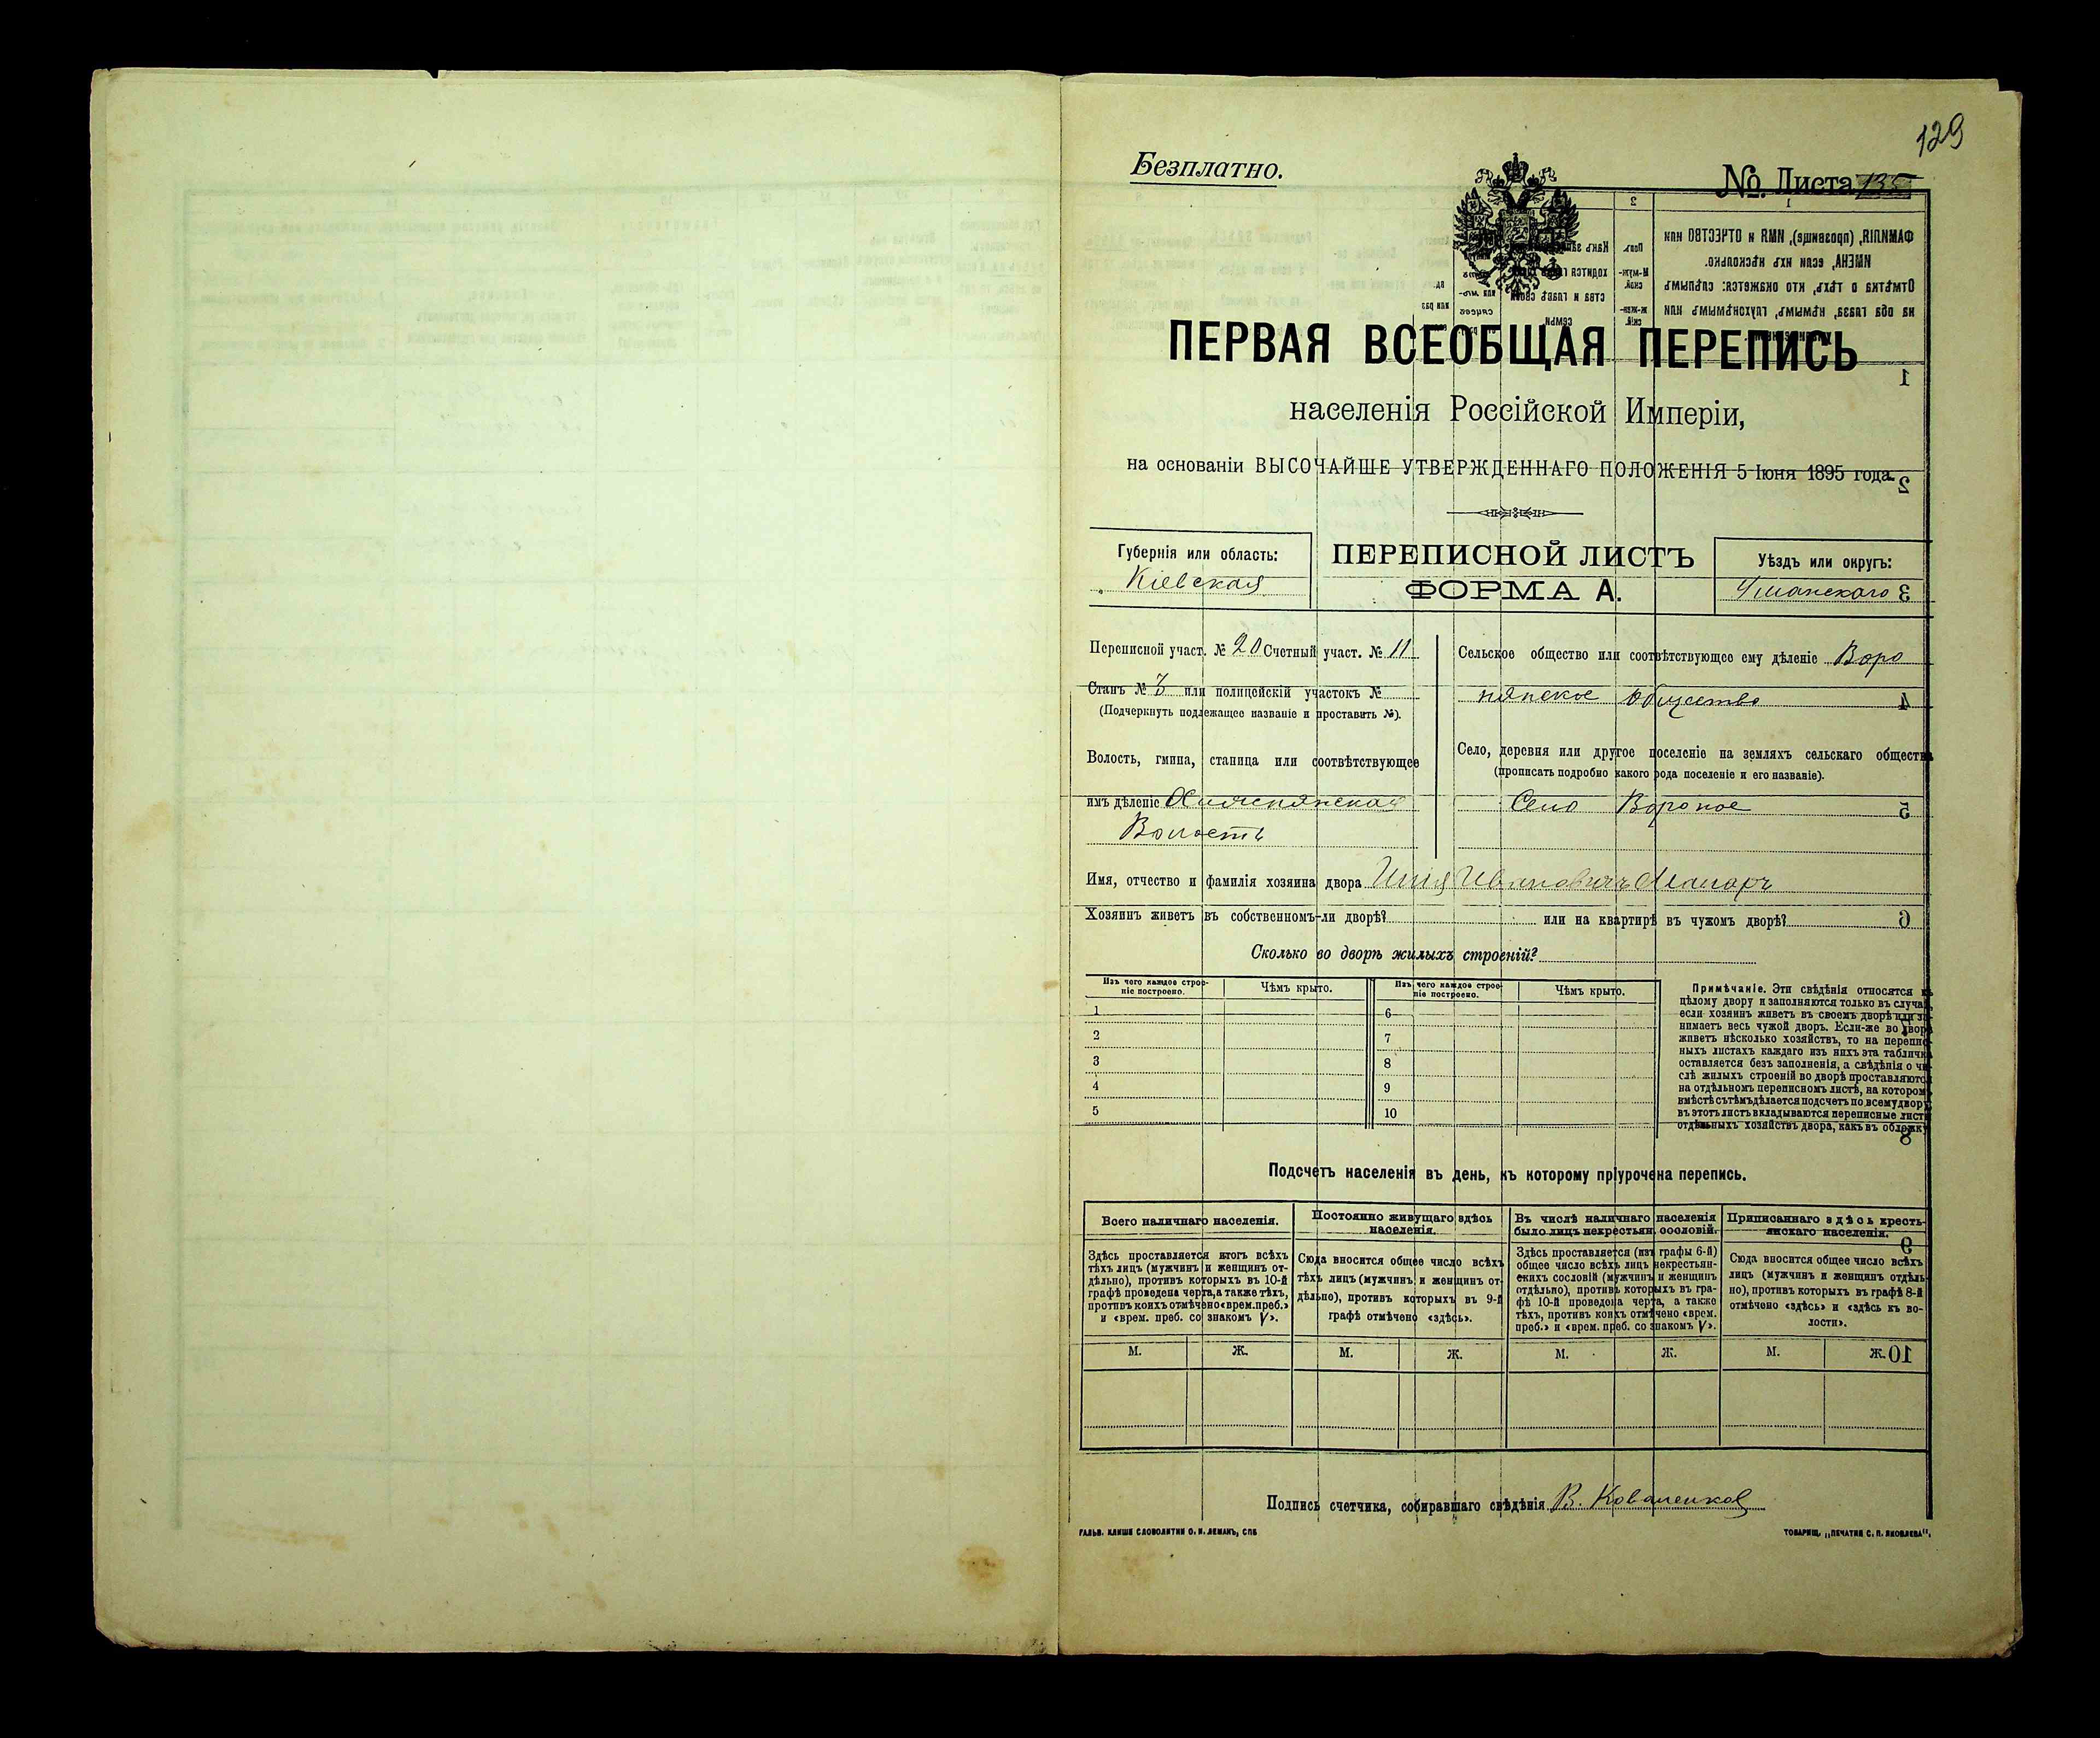 129
Безплатно.
№ Листа 135
ПЕРВАЯ ВСЕОБЩАЯ ПЕРЕПИСЬ
населенія Россійской Имперіи,
на основаніи ВЫСОЧАЙШЕ УТВЕРЖДЕННАГО ПОЛОЖЕНІЯ 5 Іюня 1895 года.
Губернія или область:
Кіевская
ПЕРЕПИСНОЙ ЛИСТЪ
ФОРМА А.
Уѣздъ или округъ:
Уманскаго
Переписной участ. № 20 Счетный участ. № 11
Станъ № 3 или полицейскій участокъ №
(Подчеркнуть подлежащее названіе и проставить №).
Волость, гмина, станица или соотвѣтствующее
имъ дѣленіе
Волость
Сельское общество или соотвѣтствующее ему дѣленіе Воро
нянское общество
Село, деревня или другое поселеніе на земляхъ сельскаго общества
(прописать подробно какого рода поселеніе и его названіе).
Село Вороное
Имя, отчество и фамилія хозяина двора Ивановичъ
Хозяинъ живетъ въ собственномъ-ли дворѣ? или на квартирѣ въ чужомъ дворѣ?
Сколько во дворѣ жилыхъ строеній?
Изъ чего каждое строе-
ніе построено.
Чѣмъ крыто.
Изъ чего каждое строе-
ніе построено.
Чѣмъ крыто.
1
2
3
4
5
6
7
8
9
10
Примѣчаніе. Эти свѣдѣнія относятся къ
цѣлому двору и заполняются только въ случаѣ,
если хозяинъ живетъ въ своемъ дворѣ или за-
нимаетъ весь чужой дворъ. Если-же во дворѣ
живетъ нѣсколько хозяйствъ, то на перепис-
ныхъ листахъ каждаго изъ нихъ эта табличка
оставляется безъ заполненія, а свѣдѣнія о чи-
слѣ жилыхъ строеній во дворѣ проставляются
на отдѣльномъ переписномъ листѣ, на которомъ
вмѣстѣ съ тѣмъ дѣлается подсчетъ по всему двору;
въ этотъ листъ вкладываются переписные листы
отдѣльныхъ хозяйствъ двора, какъ въ обложку.
Подсчетъ населенія въ день, къ которому пріурочена перепись.
Всего наличнаго населенія.
Здѣсь проставляется итогъ всѣхъ
тѣхъ лицъ (мужчинъ и женщинъ от-
дѣльно), противъ которыхъ въ 10-й
графѣ проведена черта, а также тѣхъ,
противъ коихъ отмѣчено «врем. преб.»
и «врем. преб. со знакомъ V».
М. Ж.
Постоянно живущаго здѣсь
населенія.
Сюда вносится общее число всѣхъ
тѣхъ лицъ (мужчинъ и женщинъ от-
дѣльно), противъ которыхъ въ 9-й
графѣ отмѣчено «здѣсь».
М. Ж.
Въ числѣ наличнаго населенія
было лицъ некрестьян. сословій.
Здѣсь проставляется (изъ графы 6-й)
общее число всѣхъ лицъ некрестьян-
скихъ сословій (мужчинъ и женщинъ
отдѣльно), противъ которыхъ въ гра-
фѣ 10-й проведена черта, а также
тѣхъ, противъ коихъ отмѣчено «врем.
преб.» и «врем. преб. со знакомъ V».
М. Ж.
Приписаннаго здѣсь кресть-
янскаго населенія.
Сюда вносится общее число всѣхъ
лицъ (мужчинъ и женщинъ отдѣль-
но), противъ которыхъ въ графѣ 8-й
отмѣчено «здѣсь» и «здѣсь въ во-
лости».
М. Ж.
Подпись счетчика, собиравшаго свѣдѣнія В. Коваленков
ГАЛЬВ. КЛИШЕ СЛОВОЛИТНИ О. И. ЛЕМАНЪ, СПБ
ТОВАРИЩ. „ПЕЧАТНЯ С. П. ЯКОВЛЕВА".